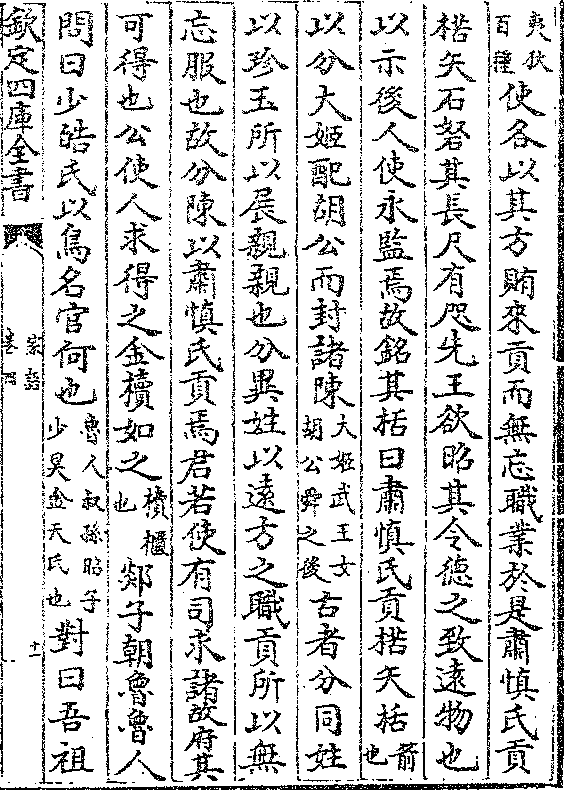 夷狄百種使各以其方賄來貢而無忘職業於是肅慎氏貢
楛矢石砮其長尺有咫先王欲昭其令德之致遠物也
以示後人使永監焉故銘其括曰肅慎氏貢楛矢括箭也
以分大姬配胡公而封諸陳大姬武王女胡公舜之後古者分同姓
以珍玉所以展親親也分異姓以遠方之職貢所以無
忘服也故分陳以肅慎氏貢焉君若使有司求諸故府其
可得也公使人求得之金櫝如之櫝櫃也郯子朝魯魯人
問曰少皓氏以鳥名官何也魯人叔孫昭子少昊金天氏也對曰吾祖
欽定四庫全書
家語
卷四
十一